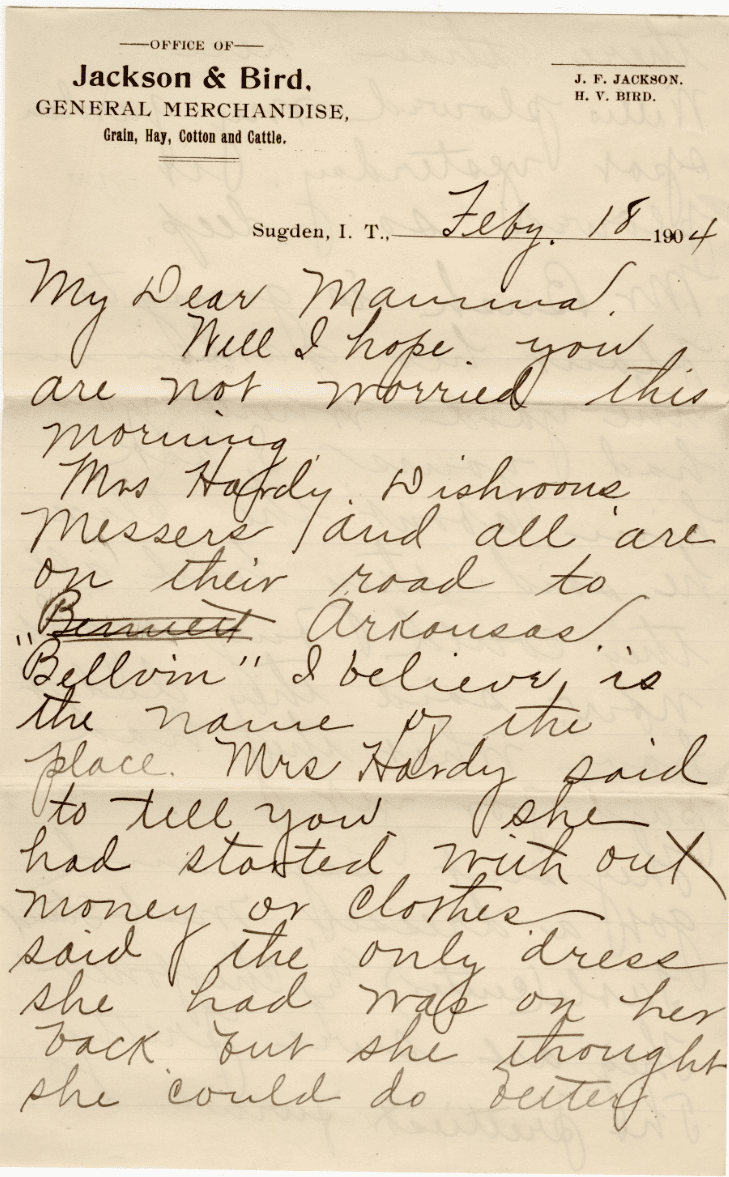 OFFICE OF
Jackson & Bird,
GENERAL MERCHANDISE,
Grain, Hay, Cotton and Cattle.
J. F. JACKSON.
H. V. BIRD.
Sugden, I. T., Feby. 18 1904
My Dear Mamma.
Well I hope you
are not worried this
morning
Mrs Hardy. Dishroons
Messers and all are
on their road to
" Bennett Arkansas
Bellvin" I believe is
the name of the
place. Mrs Hardy said
to tell you she
had started with out
money or clothes
said the only dress
she had was on her
back but she thought
she could do better